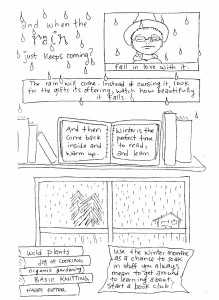 and when the
rain
just keeps coming?
fall in love with it.
The rain will come. Instead of cursing it, look
for the gifts its offering, watch how beautifully
it falls.
And then
come back
inside and
warm up.
Winter is the
perfect time
to read,
and learn
Wild Plants
Joy of COOKING
organic gardening
BASIC KNITTING
HARRY POTTER
Use the winter months
as a chance to soak
in stuff you always
mean to get around
to learning about.
Start a book club.